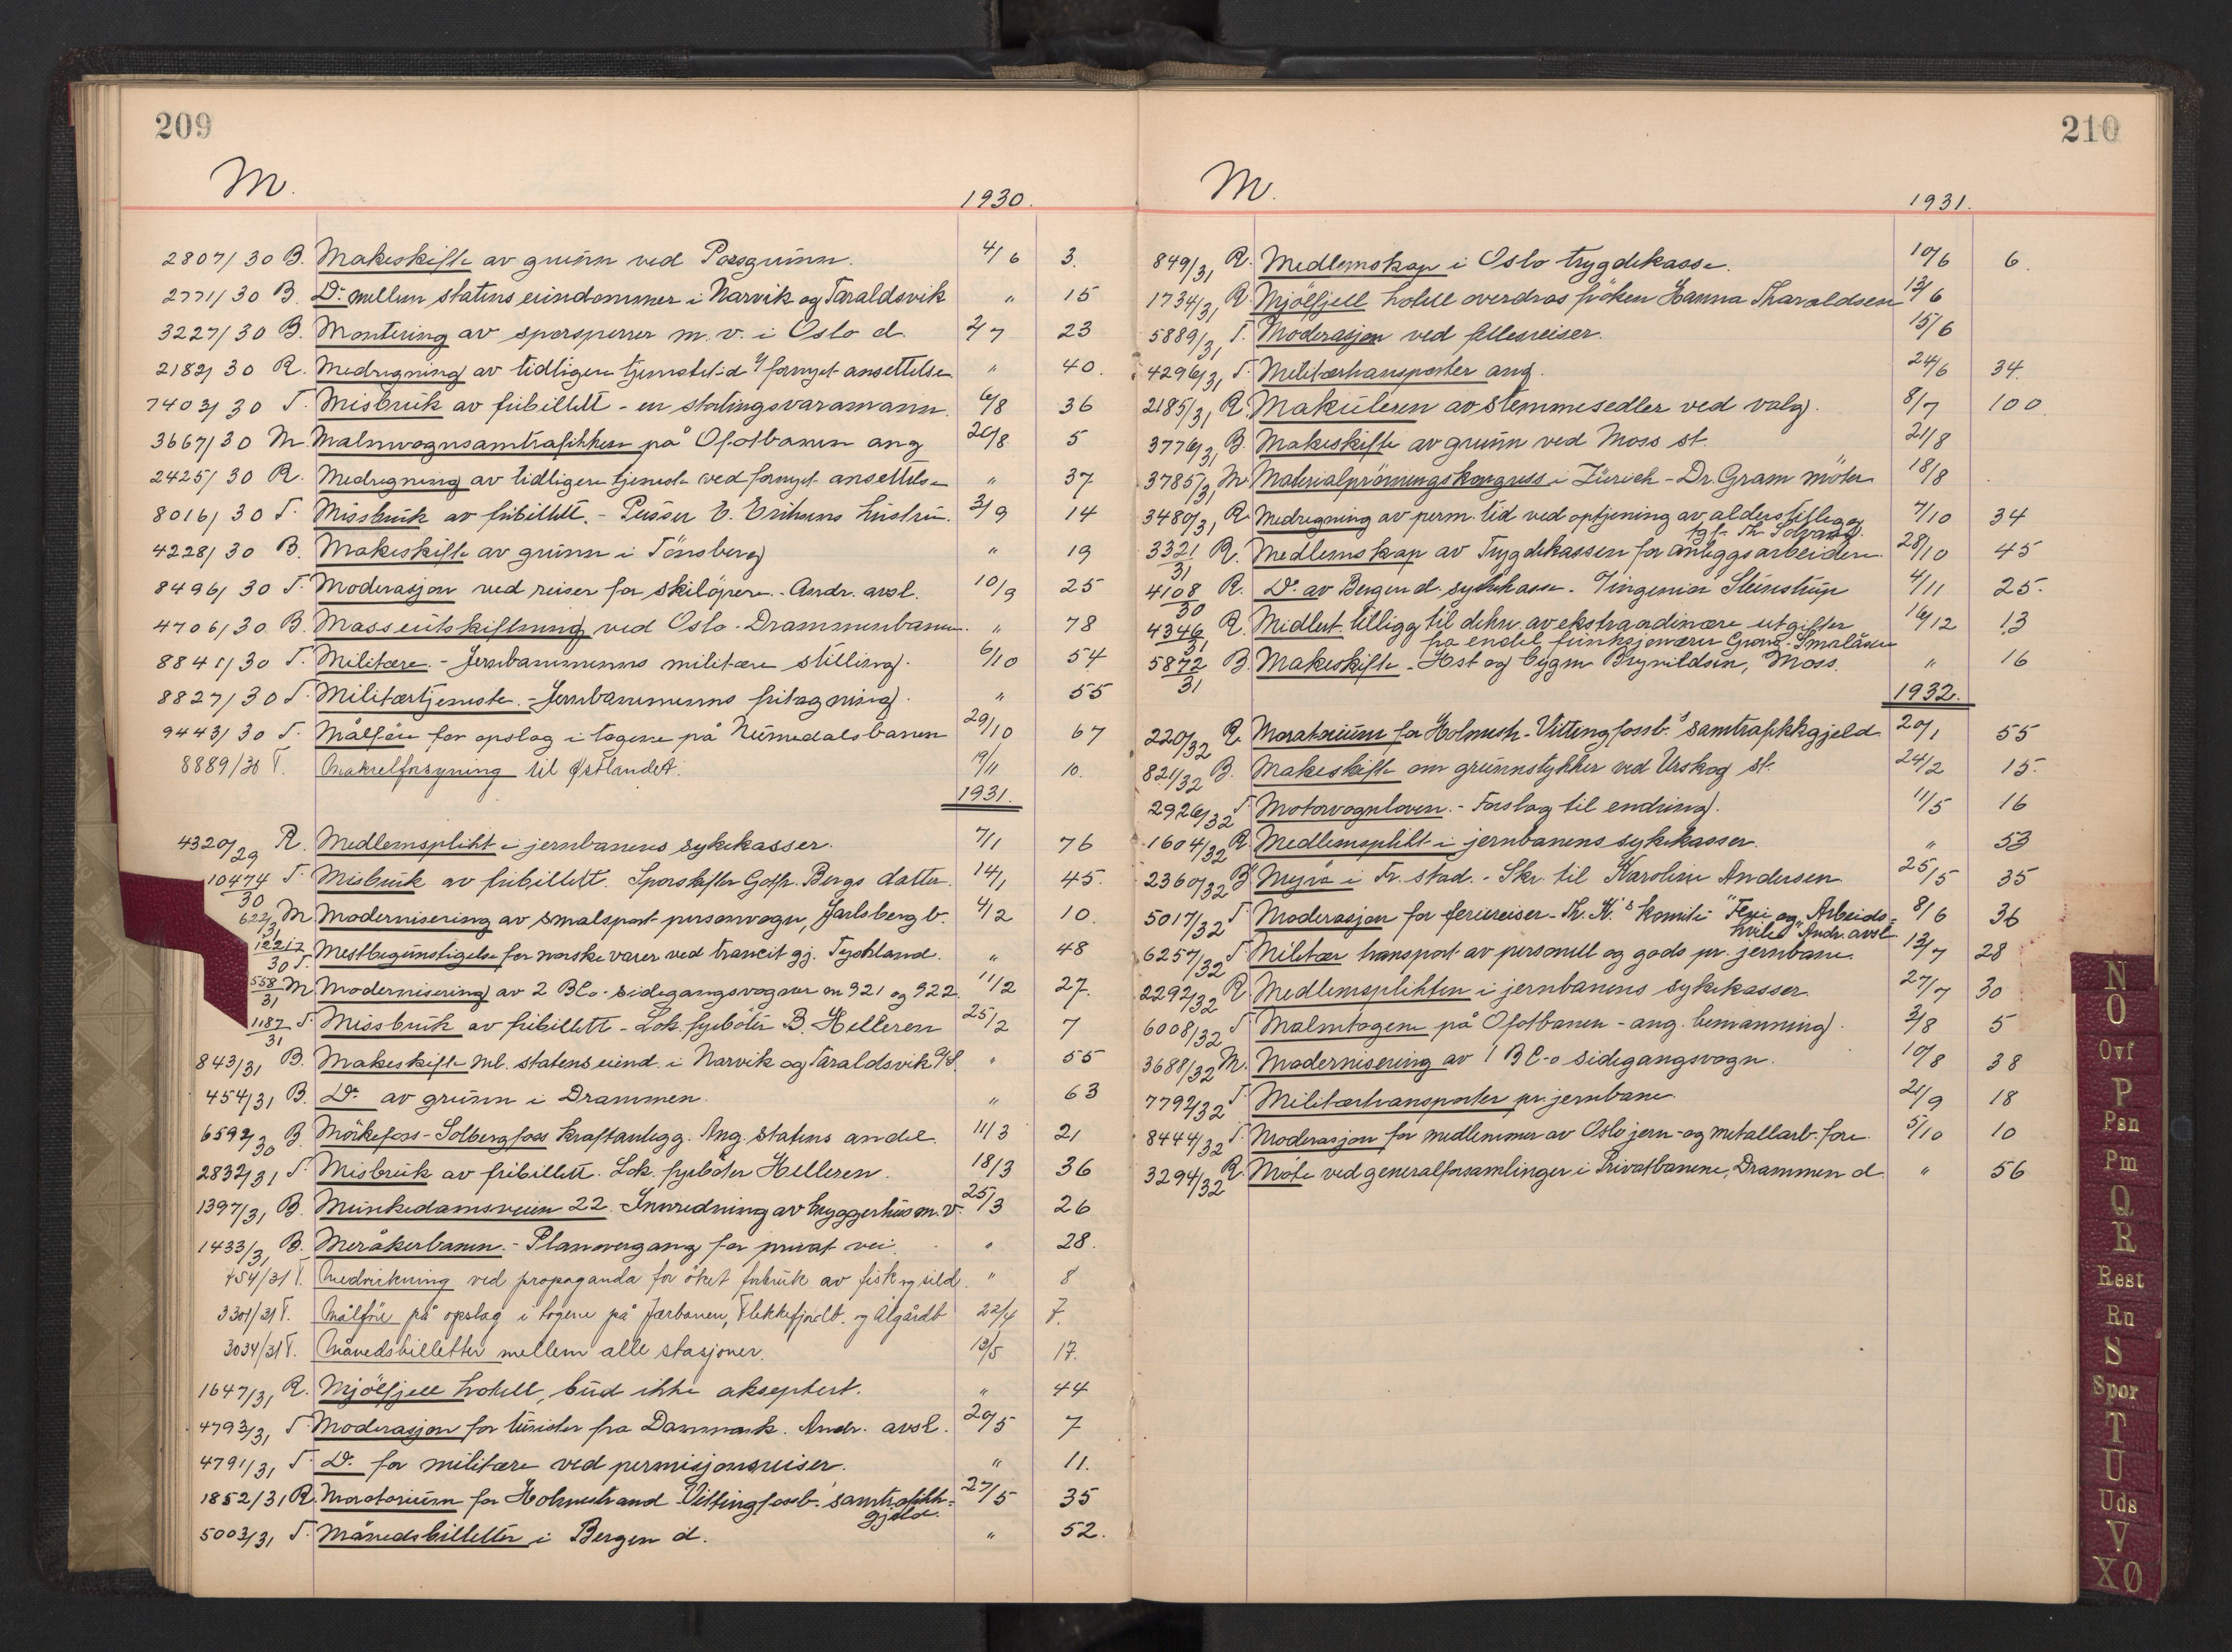 209
M.
1930.
2807/30 B. Makeskifte av grunn ved Porsgrunn. 4/6 3.
2771/30 B. Do mellem statens eiendommer i Narvik og Taraldsvik " 15
3227/30 B. Montering av sporsperrer m.v. i Oslo d. 2/7 23
2182/30 R. Medregning av tidligere tjenestetid v/ fornyet ansettelse " 40.
7403/30 T. Misbruk av fribillett - en stortingsvaramann. 6/8 36
3667/30 M Malmvognsamtrafikken på Ofotbanen ang 20/8 5
2425/30 R. Medregning av tidligere tjeneste ved fornyet ansettelse " 37
8016/30 T. Missbruk av fribillett. - Pusser E. Eriksens hustru. 3/9 14
4228/30 B. Makeskifte av grunn i Tönsberg " 19
8496/30 T. Moderasjon ved reiser for skilöpere. - Andr. avsl. 10/9 25
4706/30 B. Masseutskiftning ved Oslo-Drammenbanen. " 78
8841/30 T. Militære. - Jernbanemenns militære stilling. 6/10 54
8827/30 T. Militærtjeneste. - Jernbanemenns fritagning. " 55
9443/30 T. Målföre for opslag i togene på Numedalsbanen 29/10 67
8889/30 T. Makrelforsyning til Østlandet. 19/11 10.
1931.
4320/29 R. Medlemsplikt i jernbanens sykekasser. 7/1 76
10474/30 T. Misbruk av fribillett. Sporskifter Gotfr. Bergs datter. 14/1 45.
622/31 M Modernisering av smalspor personvogn, Jarlsberg b. 4/2 10.
12217/30 T. Mestbegunstigelse for norske varer ved transit gj. Tyskland. " 48
558/31 M Modernisering av 2 BCo-sidegangsvogner nr 921 og 922. 11/2 27.
1187/31 T. Missbruk av fribillett - Lok. fyrböter B. Helleren 25/2 7
843/31 B. Makeskifte ml. statens eiend. i Narvik og Taraldsvik A/S. " 55
454/31 B. Do av grunn i Drammen. " 63
6592/30 B. Mörkefoss-Solbergfoss kraftanlegg. Ang. statens andel. 11/3 21
2832/31 T. Misbruk av fribillett. Lok. fyrböter Helleren. 18/3 36
1397/31 B. Munkedamsveien 22. Innredning av bryggerhus m.v. 25/3 26
1433/31 B. Meråkerbanen. - Planovergang for privat vei. " 28.
454/31 T. Medvirkning ved propaganda for öket forbruk av fisk og sild. " 8
3301/31 T. Målföre på opslag i togene på Jærbanen, Flekkefjordb. og Ålgårdb 22/4 7.
3034/31 T. Månedsbilletter mellem alle stasjoner. 13/5 17.
1647/31 R. Mjölfjell hotell, bud ikke akseptert. " 44
4793/31 T Moderasjon for turister fra Danmark. Andr. avsl. 20/5 7
4791/31 T. Do for militære ved permisjonsreiser. " 11.
1852/31 R. Moratorium for Holmestrand-Vittingfossb. samtrafikk- 27/5 35
gjeld.
5003/31 T. Månedsbilletter i Bergen d. " 52.
210
M.
1931.
849/31 R. Medlemskap i Oslo trygdekasse. 10/6 6.
1734/31 R. Mjölfjell hotell overdras fröken Hanna Tharaldsen 12/6
5889/31 T. Moderasjon ved fellesreiser. 15/6
4296/31 T. Militærtransporter ang. 24/6 34.
2185/31 R. Makuleren av stemmesedler ved valg. 8/7 100
3776/31 B. Makeskifte av grunn ved Moss st. 21/8
3785/31 M. Materialprövningskongress i Zürich - Dr. Gram möter 18/8
3480/31 R. Medregning av perm. tid ved optjening av alderstillegg 7/10 34
tgf. Th. Solvang.
3321/31 R. Medlemskap av Trygdekassen for anleggsarbeidere. 28/10 45
4108/30 R. Do av Bergen d. sykekasse. Ingeniör Steenstrup 4/11 25.
4346/31 R. Midlert. tillegg til dekn. av ekstraordinære utgifter 16/12 13
fra endel funksjonærer Grong-Smalåsen
5872/31 B. Makeskifte. - Höst og bygm Brynildsen, Moss. " 16
1932.
220/32 R. Moratorium for Holmestr.-Vittingfossb.s samtrafikkgjeld 20/1 55
821/32 B. Makeskifte om grunnstykker ved Urskog st. 24/2 15.
2926/32 T Motorvognloven. - Forslag til endring. 11/5 16
1604/32 R. Medlemsplikt i jernbanens sykekasser. " 53
2360/32 B Myra i Fr.stad. - Skr. til Karoline Andersen 25/5 35
5017/32 T Moderasjon for feriereiser - Th. K.'s komité "Ferie og Arbeids- 8/6 36
hvile" Andr. avsl.
6257/32 T Militær transport av personell og gods pr. jernbane. 13/7 28
2292/32 R Medlemsplikten i jernbanens sykekasser. 27/7 30
6008/32 T Malmtogene på Ofotbanen - ang. bemanning. 3/8 5
3688/32 M. Modernisering av 1 BC-o sidegangsvogn. 10/8 38
7792/32 T Militærtransporter pr. jernbane. 21/9 18
8444/32 T. Moderasjon for medlemmer av Oslo jern- og metallarb. fore. 5/10 10
3294/32 R. Möte ved generalforsamlinger i Privatbanene, Drammen d. " 56
N
O
Ovf
P
Psn
Pm
Q
R
Rest
Ru
S
Spor
T
U
Uds
V
XØ